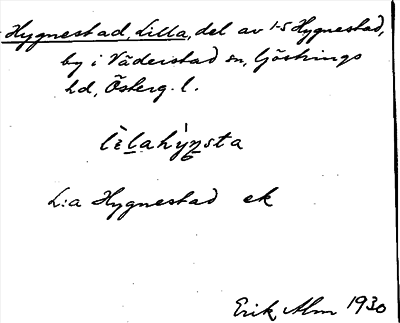 Hygnestad, Lilla, del av 1-5 Hygnestad,
by i Väderstad sn, Göstrings
hd, Österg. l.
lìlahỳnsta
L:a Hygnestad ek
Erik Alm 1930